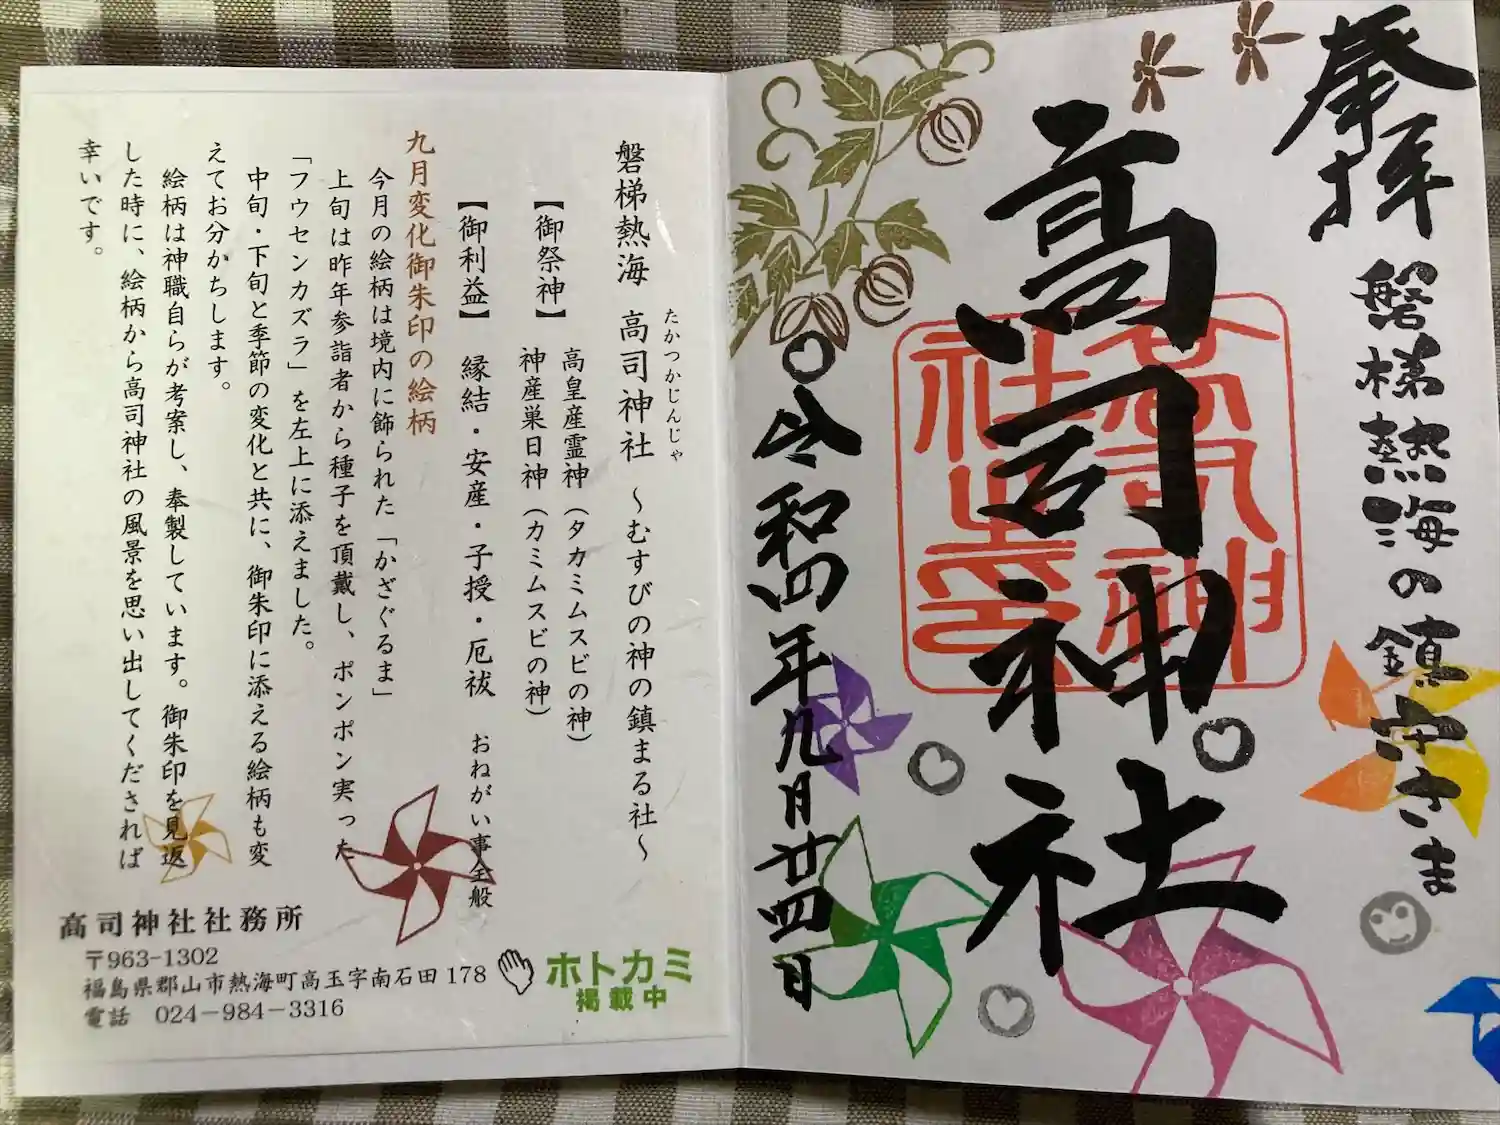 奉拝
磐梯熱海の鎮守さま
高司神社
令和四年九月廿四日
高司神
社之印
磐梯熱海 高司神社 ～むすびの神の鎮まる社～
たかつかじんじゃ
【御祭神】 高皇産霊神（タカミムスビの神）
神産巣日神（カミムスビの神）
【御利益】 縁結・安産・子授・厄祓 おねがい事全般
九月変化御朱印の絵柄
今月の絵柄は境内に飾られた「かざぐるま」
上旬は昨年参詣者から種子を頂戴し、ポンポン実った
「フウセンカズラ」を左上に添えました。
中旬・下旬と季節の変化と共に、御朱印に添える絵柄も変
えてお分かちします。
絵柄は神職自らが考案し、奉製しています。御朱印を見返
した時に、絵柄から高司神社の風景を思い出してくだされば
幸いです。
高司神社社務所
〒963-1302
福島県郡山市熱海町高玉字南石田178
電話 024-984-3316
ホトカミ
掲載中